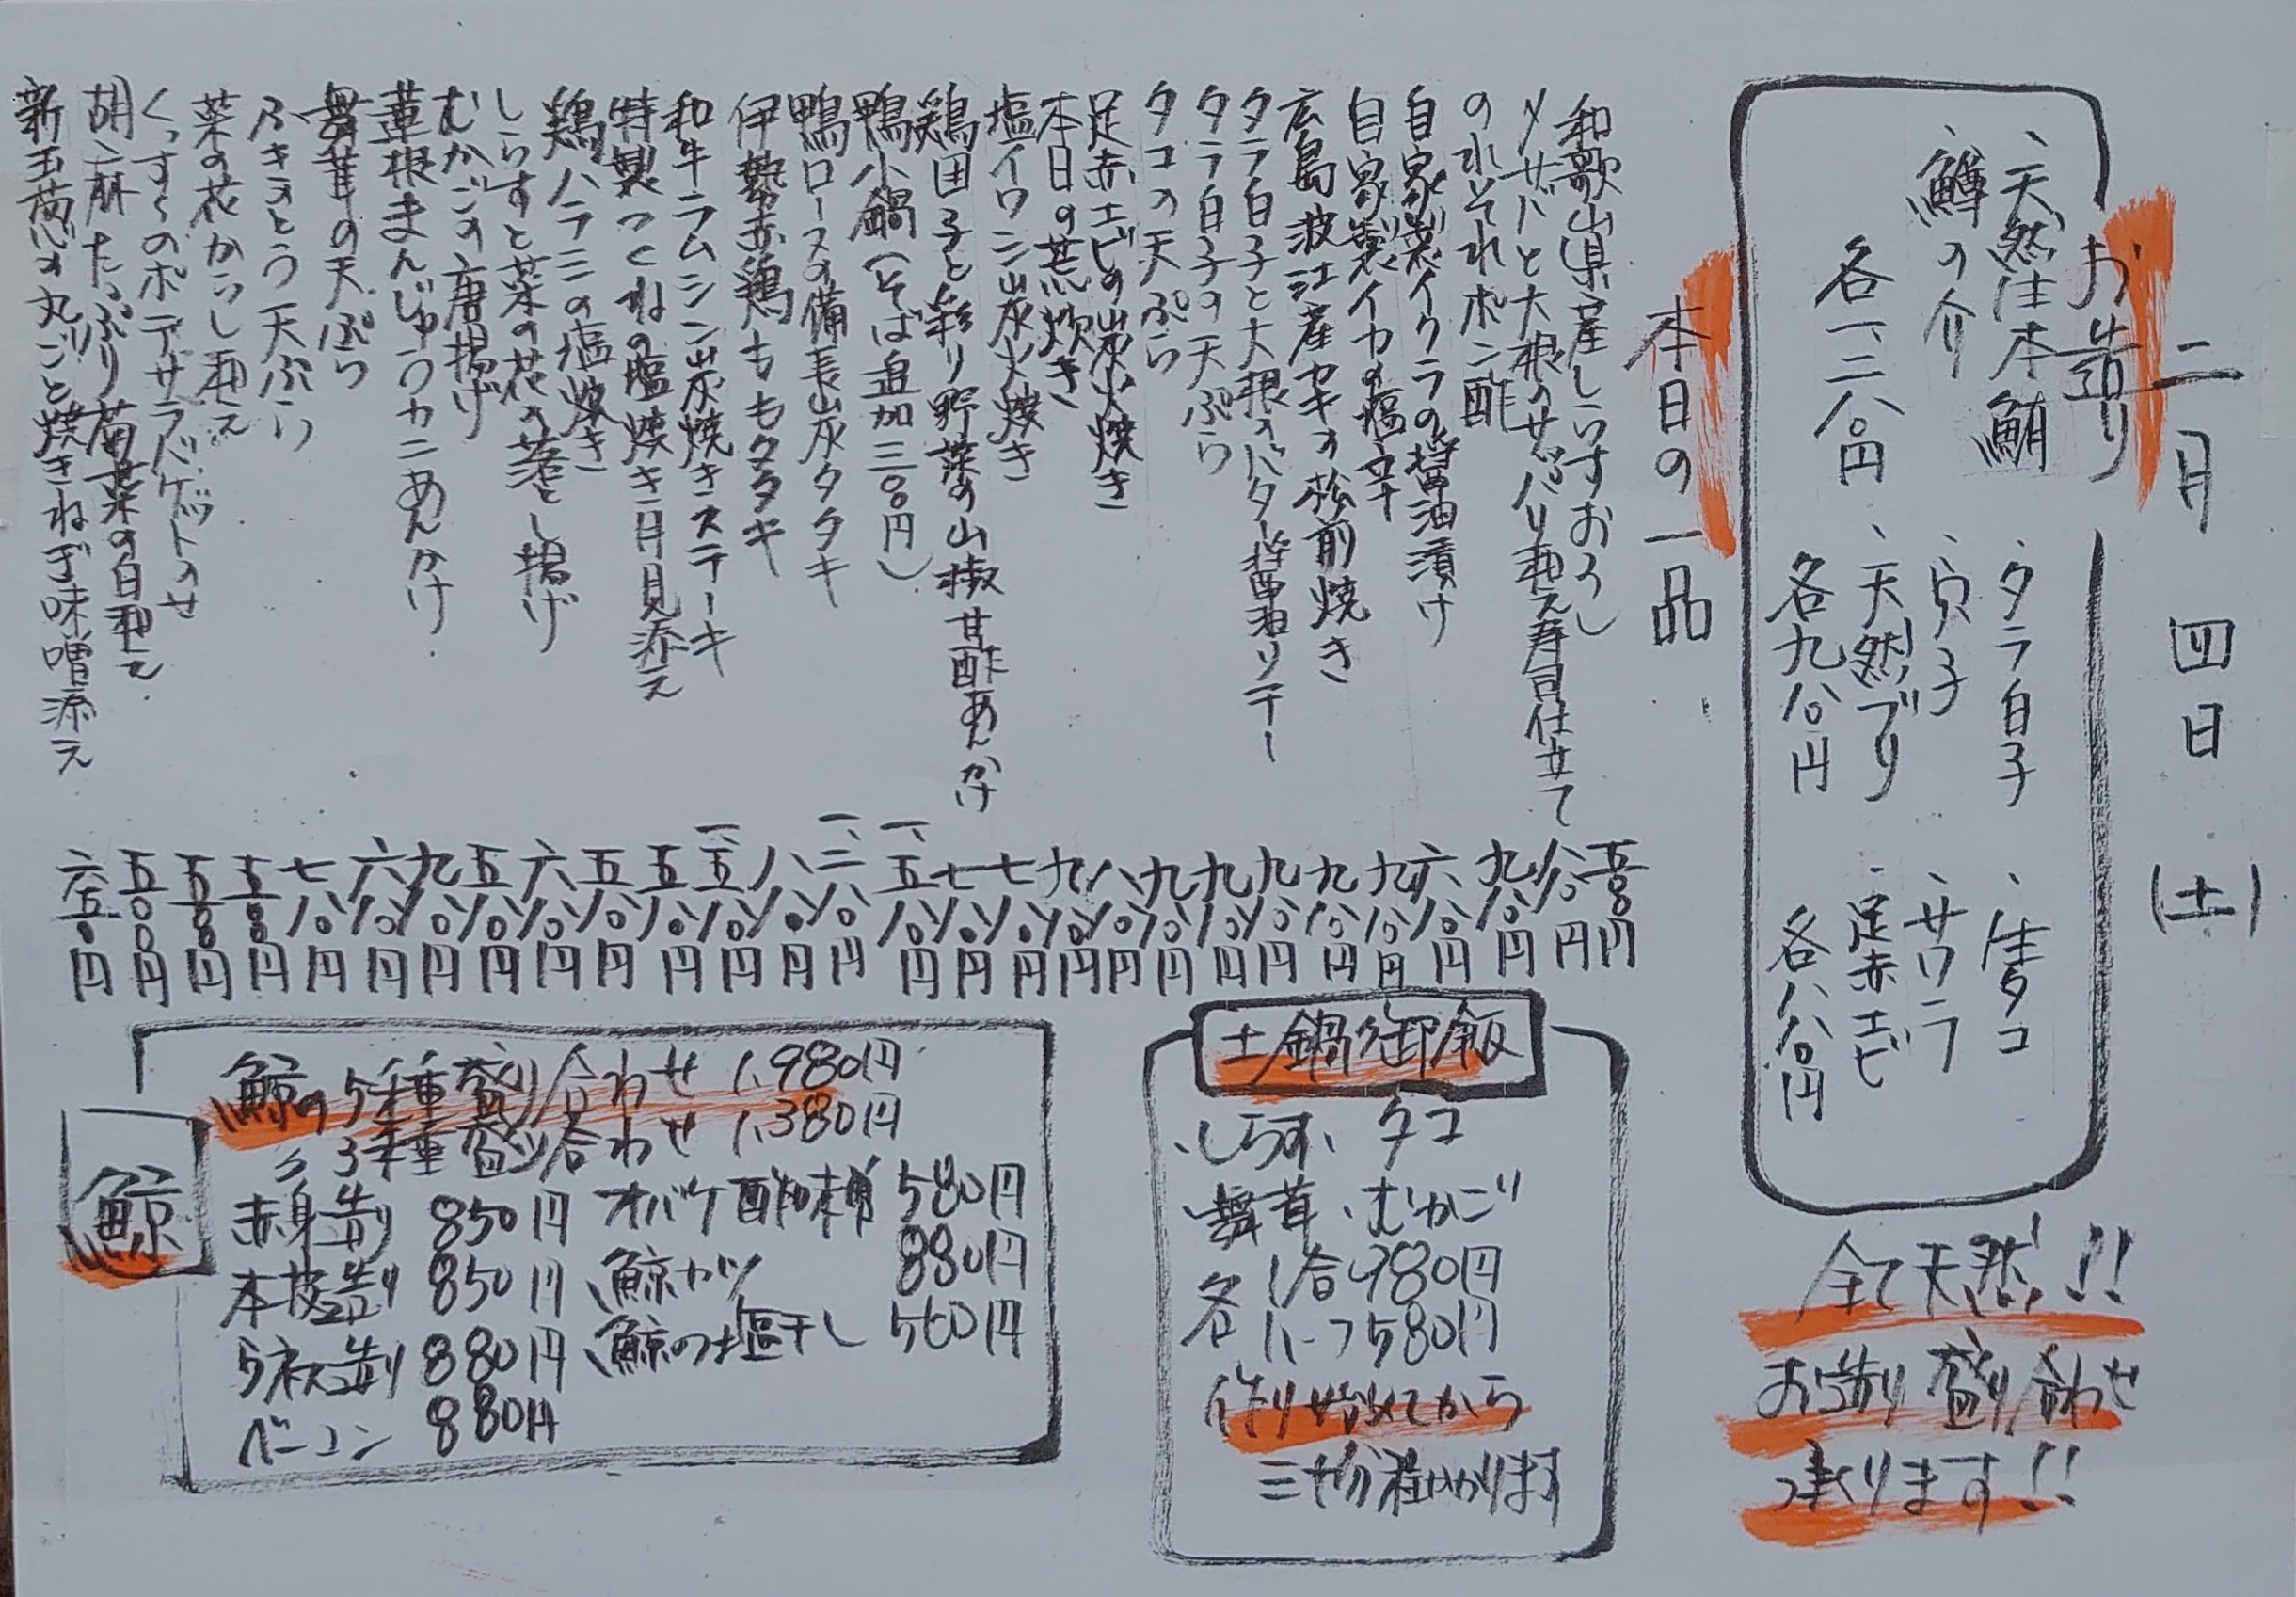 二月四日(土)
お造り
、天然生本鮪
、鱒の介
各一、二八〇円
・タラ白子
、真子
、天然ブリ
各九八〇円
、生タコ
、サワラ
、足赤エビ
各八八〇円
全て天然!!
お造り盛り合わせ
承ります!!
本日の一品
和歌山県産しらすおろし
〆サバと大根のサッパリ和え寿司仕立て
のれそれポン酢
自家製イクラの醤油漬け
自家製イカの塩辛
広島波江産カキの松前焼き
タラ白子と大根のバター醤油ソテー
タラ白子の天ぷら
タコの天ぷら
足赤エビの炭火焼き
本日の荒炊き
塩イワシ炭火焼き
鶏団子と彩り野菜の山椒甘酢あんかけ
鴨小鍋(そば追加三〇〇円)
鴨ロースの備長炭タタキ
伊勢赤鶏ももタタキ
和牛ラムシン炭焼きステーキ
特製つくねの塩焼き月見添え
鶏ハラミの塩焼き
しらすと菜の花の落とし揚げ
むかごの唐揚げ
蓮根まんじゅうカニあんかけ
舞茸の天ぷら
ふきのとう天ぷら
菜の花からし和え
くっすくのポテサラバゲットのせ
胡麻たっぷり菊菜の白和え
新玉葱の丸ごと焼きねぎ味噌添え
五〇〇円
八八〇円
九八〇円
六八〇円
九八〇円
九八〇円
九八〇円
九八〇円
九八〇円
八八〇円
九八〇円
七八〇円
七八〇円
一、五八〇円
一、二八〇円
八八〇円
一、五八〇円
五八〇円
五八〇円
六八〇円
五八〇円
九八〇円
六八〇円
七八〇円
五五〇円
五五〇円
五〇〇円
六五〇円
土鍋御飯
、しらす、タコ
、舞茸、むかご
各1合980円
各ハーフ580円
作り始めてから
三十分程かかります
鯨
鯨の5種盛り合わせ 1,980円
〃3種盛り合わせ 1,380円
赤身造り 850円 オバケ酢味噌 580円
本皮造り 850円 、鯨カツ 880円
うねす造り 880円 、鯨の塩干し 560円
ベーコン 880円